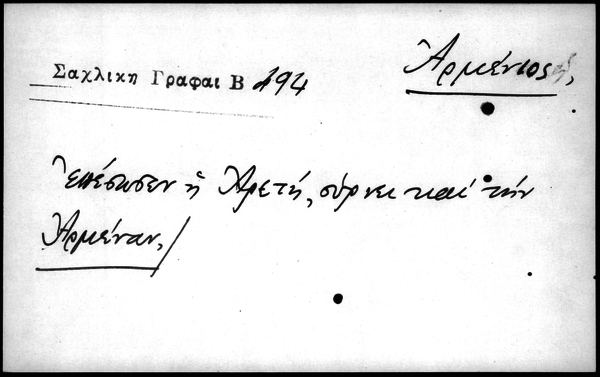 Ἀρμένιος,
Σαχλικη Γραφαι Β 294
Ἐπέσωσεν ἡ Ἀρετή, σύρνει καὶ τὴν
Ἀρμέναν,